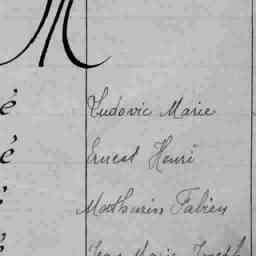 M
é Ludovic Marie
é Ernest Henri
é Mathurin Fabien
é Jean Marie Joseph